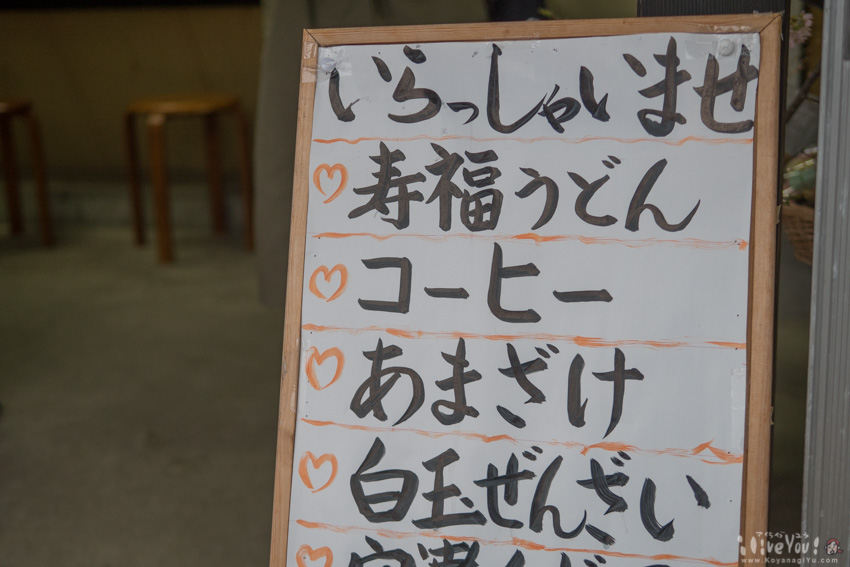 いらっしゃいませ
寿福うどん
コーヒー
あまざけ
白玉ぜんざい
www.KoyanagiYu.com